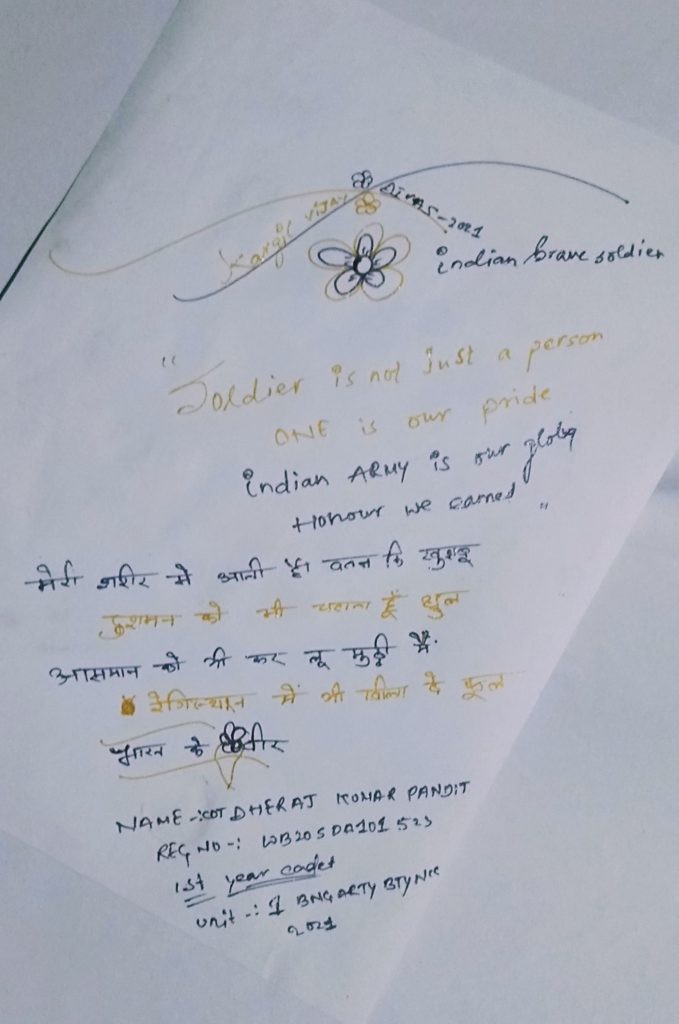 Kargil VIJAY DIVAS-2021
indian brave soldier
"Soldier is not just a person
ONE is our pride
indian ARMY is our
Honour we earned"
मेरी शरीर में आती है। वतन कि खुशबू
दुशमन को भी चटाता हूँ धुल
आसमान को भी कर लू मुठ्ठी में.
में भी खीला दे फूल
भारत के वीर
NAME-: CDT DHERAJ KUMAR PANDIT
REG NO-: WB20SDA101523
1st year cadet
unit-: 1 BNG ARTY BTY NCC
2021